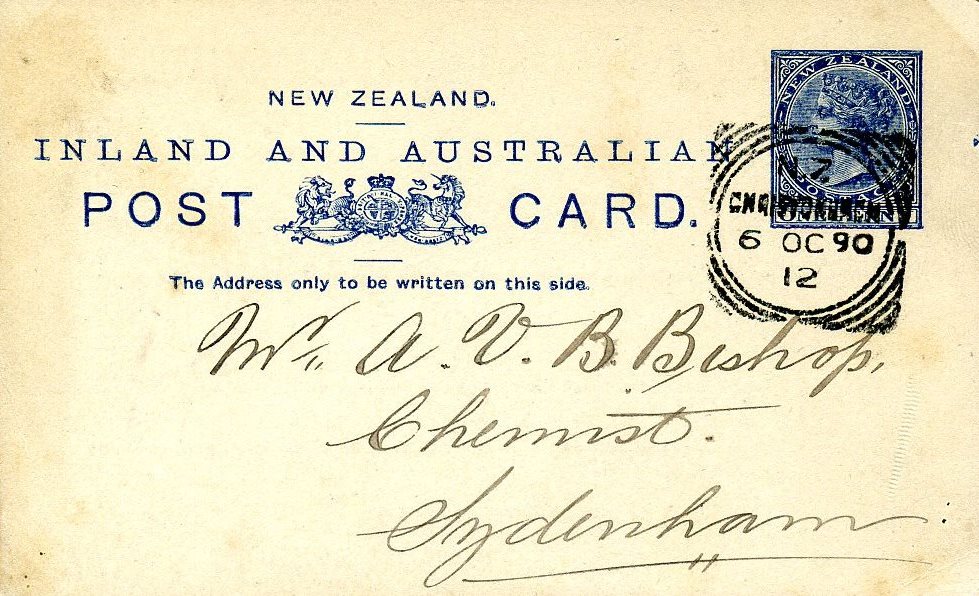 NEW ZEALAND.
INLAND AND AUSTRALIAN
POST CARD.
The Address only to be written on this side.
NEW ZEALAND
7
6 OC 90
12
Mr. A. V. B. Bishop,
Chemist.
Sydenham